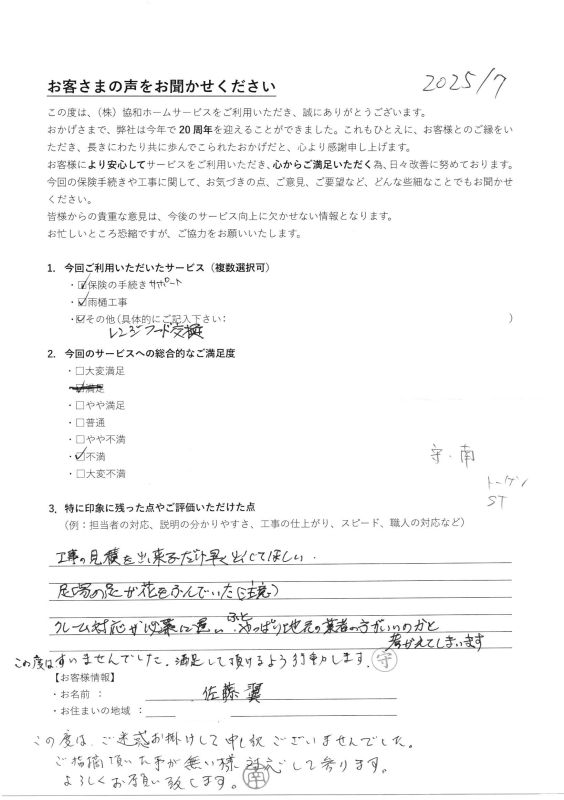 2025/7
お客さまの声をお聞かせください
この度は、（株）協和ホームサービスをご利用いただき、誠にありがとうございます。
おかげさまで、弊社は今年で20周年を迎えることができました。これもひとえに、お客様とのご縁をい
ただき、長きにわたり共に歩んでこられたおかげだと、心より感謝申し上げます。
お客様により安心してサービスをご利用いただき、心からご満足いただく為、日々改善に努めております。
今回の保険手続きや工事に関して、お気づきの点、ご意見、ご要望など、どんな些細なことでもお聞かせ
ください。
皆様からの貴重な意見は、今後のサービス向上に欠かせない情報となります。
お忙しいところ恐縮ですが、ご協力をお願いいたします。
1. 今回ご利用いただいたサービス（複数選択可）
・☑保険の手続きサポート
・☑雨樋工事
・☑その他(具体的にご記入下さい: )
レンジフード交換
2. 今回のサービスへの総合的なご満足度
・□大変満足
・☑満足
・□やや満足
・□普通
・□やや不満
・☑不満
・□大変不満
守・南
トーゲン
ST
3. 特に印象に残った点やご評価いただけた点
（例：担当者の対応、説明の分かりやすさ、工事の仕上がり、スピード、職人の対応など）
工事の見積を出来るだけ早く出してほしい.
足場の足が花をふんでいた(注意)
クレーム対応が非常に遅い.ふとやっぱり地元の業者の方がいいのかと
考がえてしまいます
この度はすいませんでした.満足して頂けるよう行動します.守
【お客様情報】
・お名前 ： 佐藤 翼
・お住まいの地域 ：
この度は、ご迷惑お掛けして申し訳ございませんでした。
ご指摘頂いた事が無い様対応して参ります。
よろしくお願い致します。南